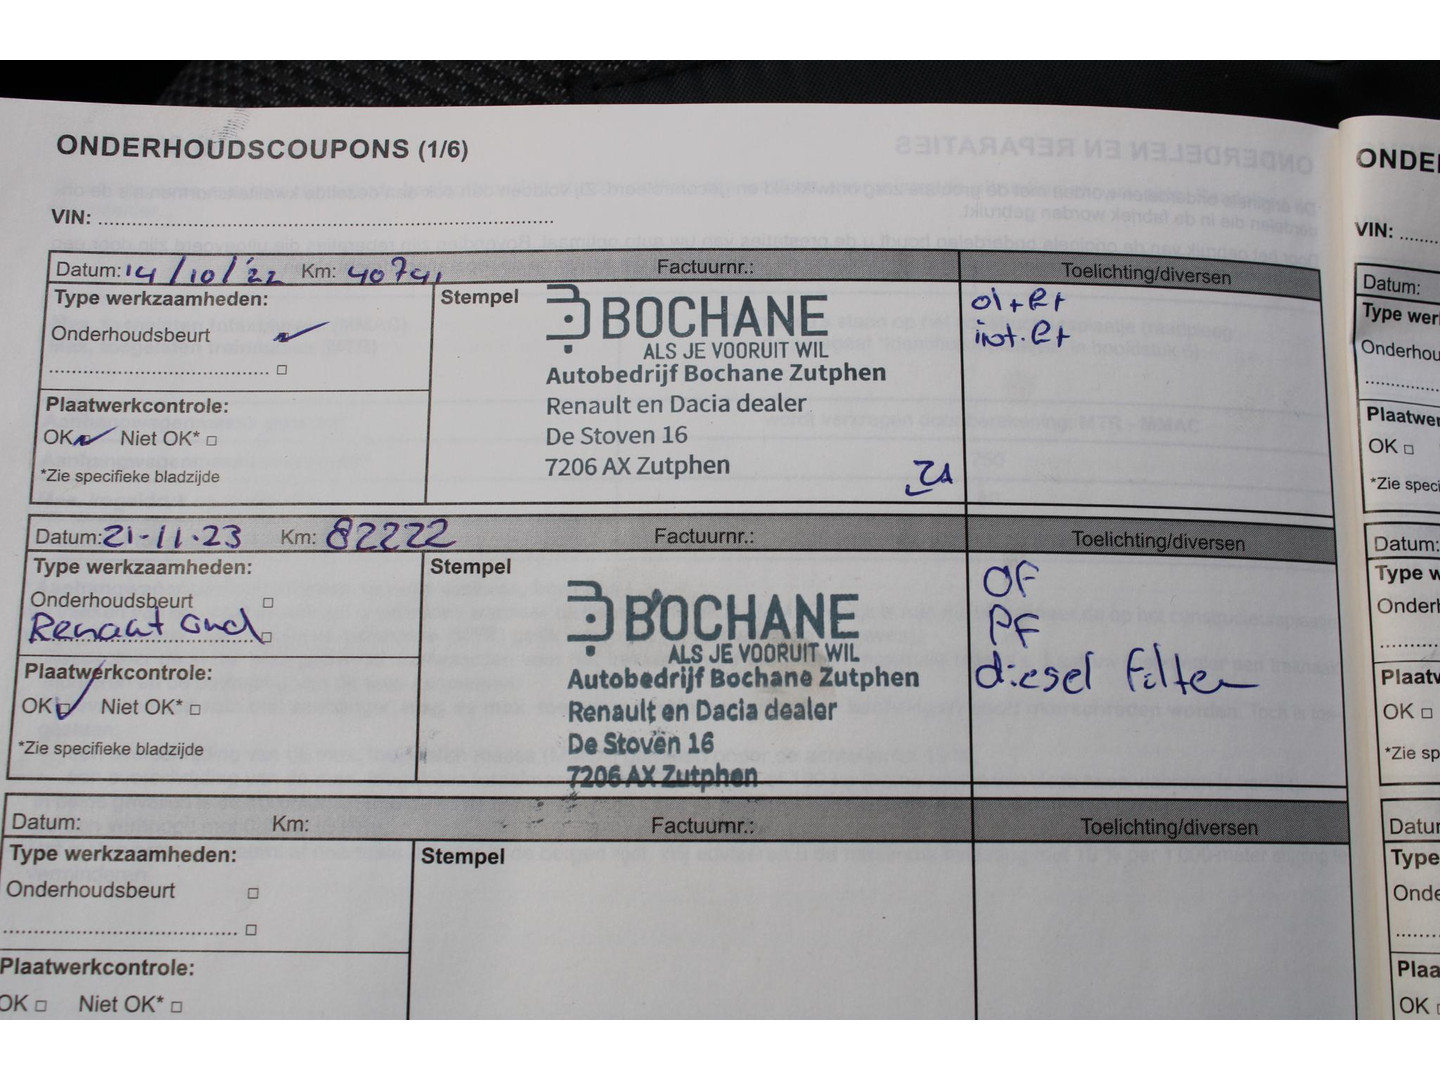 ONDERHOUDSCOUPONS (1/6)
VIN:
Datum: 14/10/'22 Km: 40791 Factuurnr.: Toelichting/diversen
Type werkzaamheden:
Onderhoudsbeurt
Plaatwerkcontrole:
OK Niet OK*
*Zie specifieke bladzijde
Stempel
BOCHANE
ALS JE VOORUIT WIL
Autobedrijf Bochane Zutphen
Renault en Dacia dealer
De Stoven 16
7206 AX Zutphen
Datum: 21-11-23 Km: 82222 Factuurnr.: Toelichting/diversen
Type werkzaamheden:
Onderhoudsbeurt
Plaatwerkcontrole:
OK Niet OK*
*Zie specifieke bladzijde
Stempel
BOCHANE
ALS JE VOORUIT WIL
Autobedrijf Bochane Zutphen
Renault en Dacia dealer
De Stoven 16
7206 AX Zutphen
OF
PF
diesel filter
Datum: Km: Factuurnr.: Toelichting/diversen
Type werkzaamheden:
Onderhoudsbeurt
Plaatwerkcontrole:
OK Niet OK*
Stempel
VIN:
Datum:
OK
Datum:
OK
OK